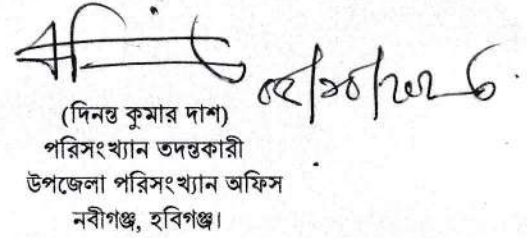 (দিনন্ত কুমার দাশ)
পরিসংখ্যান তদন্তকারী
উপজেলা পরিসংখ্যান অফিস
নবীগঞ্জ, হবিগঞ্জ।